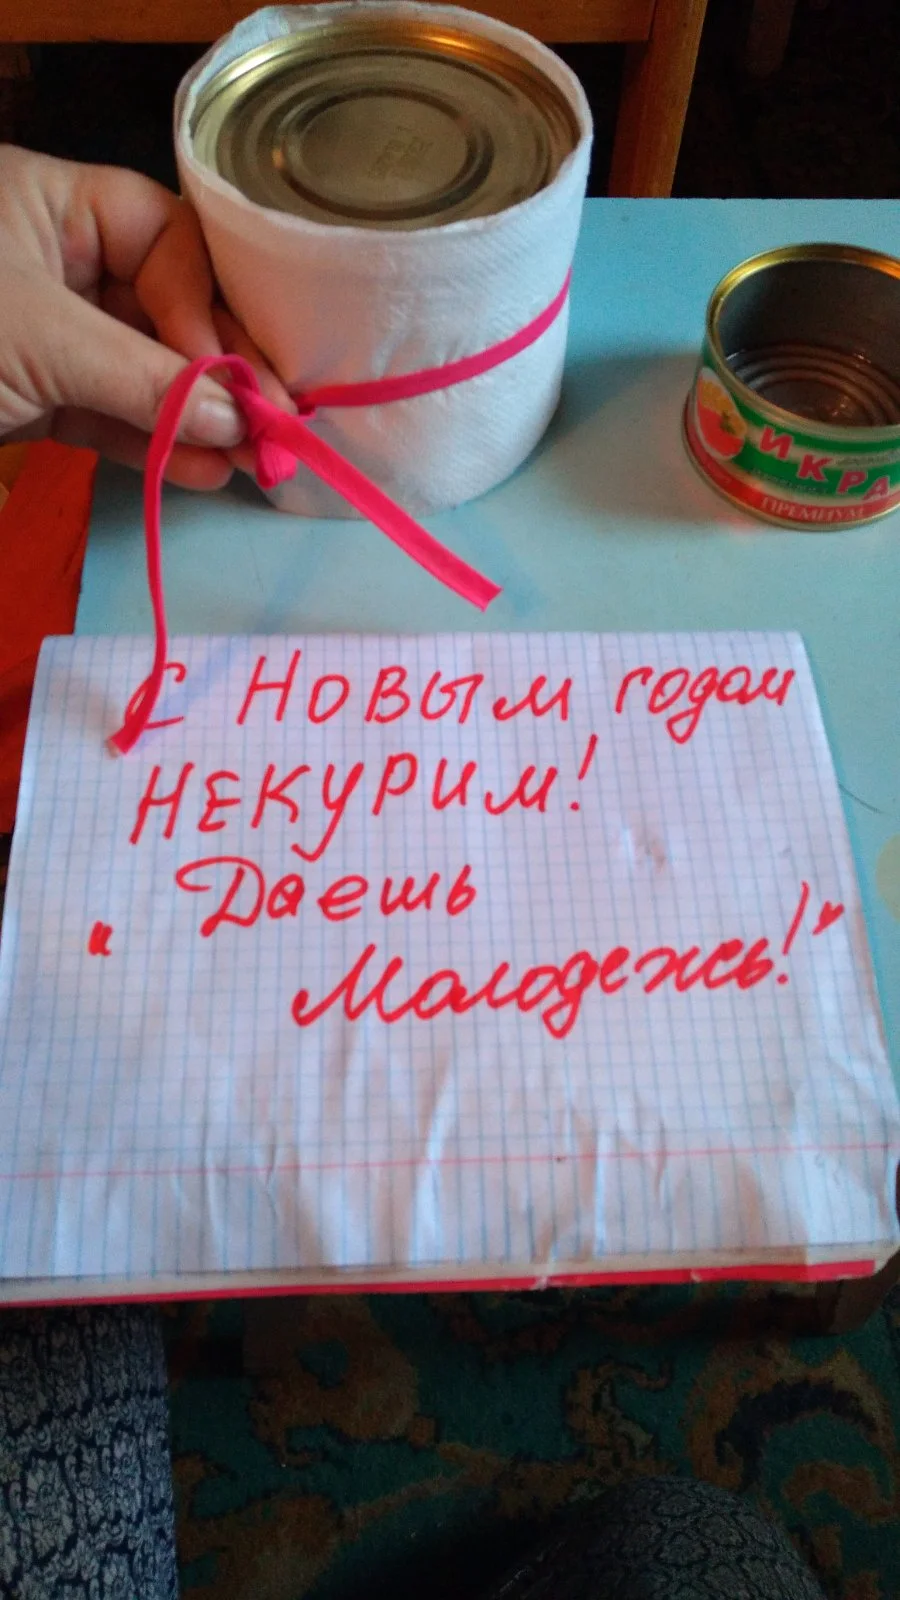 ИКРА
ПРЕМИУМ
С Новым годом
НЕКУРИМ!
" Даешь
Молодежь!"